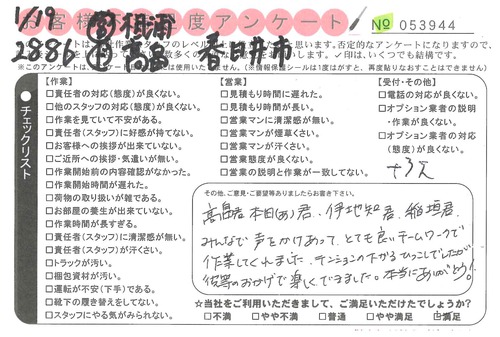 1/19
お客様満足度アンケート
No 053944
2886
春日井市
※このアンケートは
【作業】
□責任者の対応(態度)が良くない。
□他のスタッフの対応(態度)が良くない。
□作業を見ていて不安がある。
□責任者(スタッフ)に好感が持てない。
□お客様への挨拶が出来ていない。
□ご近所への挨拶・気遣いが無い。
□作業開始前の内容確認がなかった。
□作業開始時間が遅れた。
□荷物の取り扱いが雑である。
□お部屋の養生が出来ていない。
□作業時間が長すぎる。
□責任者(スタッフ)に清潔感が無い。
□責任者(スタッフ)が汗くさい。
□トラックが汚い。
□梱包資材が汚い。
□運転が不安(下手)である。
□靴下の履き替えをしてない。
□スタッフにやる気がみられない。
【営業】
□見積もり時間に遅れた。
□見積もり時間が長い。
□営業マンに清潔感が無い。
□営業マンが煙草くさい。
□営業マンが汗くさい。
□営業態度が良くない。
□営業の説明と作業が一致してない。
【受付・その他】
□電話の対応が良くない。
□オプション業者の説明
・作業が良くない。
□オプション業者の対応
(態度)が良くない。
チェックリスト
その他、ご意見・ご要望等ありましたらお書き下さい。
高畠君 本日(あ)君、伊地知君、稲垣君、
みんなで声をかけあって、とても良いチームワークで
作業してくれました。テンションの下がるひっこしでしたが
彼等のおかげで楽しくできました。本当にありがとう!
☆当社をご利用いただきまして、ご満足いただけたでしょうか?
□不満 □やや不満 □普通 □やや満足 ☑満足